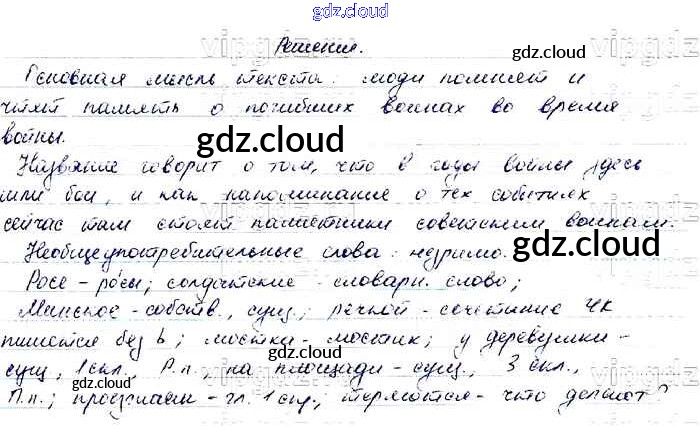 gdz.cloud
Решения.
gdz.cloud
Основная мысль текста: люди помнят и
чтят память о погибших воинах во время
войны.
gdz.cloud
Название говорит о том, что в годы войны здесь
шли бои, и как напоминание о тех событиях
сейчас там стоят памятники советским воинам.
Необщеупотребительные слова: незримо.
gdz.cloud
Росе - ро́сы; солдатские - словарн. слово;
Минское - собств., сущ.; речной - сочетание чк
gdz.cloud
пишется без ь; мостка - мостик; у деревушки -
gdz.cloud
сущ., 1 скл., Р.п., на площади - сущ., 3 скл.,
gdz.cloud
П.п.; проезжаем - гл. 1 спр.; термотся - что делают?
gdz.cloud